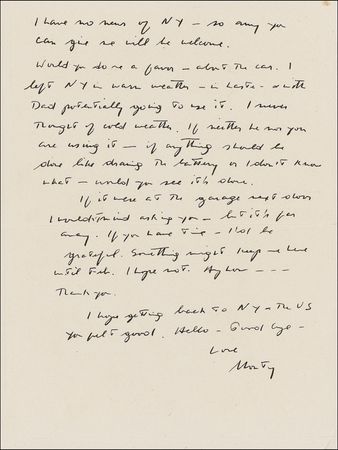 I have no news of NY – so any you
can give me will be welcome.
Would you do me a favor – about the car. I
left NY in warm weather – in haste – with
Dad potentially going to use it. I never
thought of cold weather. If neither he nor you
are using it – if anything should be
done like draining the battery or I don't know
what – would you see it's done.
If it were at the garage next door
I wouldn't mind asking you – but it's far
away. If you have time – I'd be
grateful. Something might keep me here
until Feb. I hope not. Anyhow – – –
Thank you.
I hope getting back to NY – the US
you felt good. Hello – Good bye –
Love
Monty